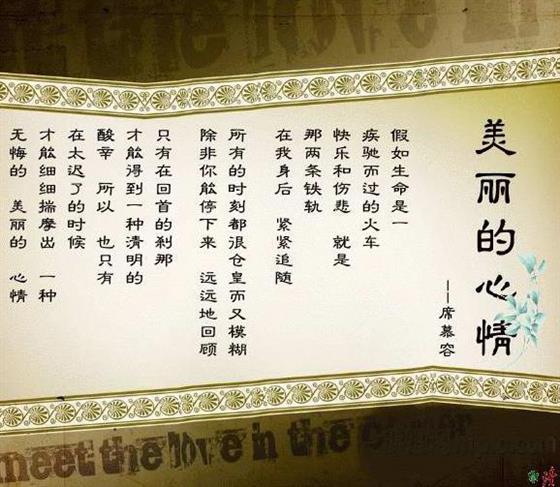 美丽的心情
——席慕容
假如生命是一
疾驰而过的火车
快乐和伤悲 就是
那两条铁轨
在我身后 紧紧追随
所有的时刻都很仓皇而又模糊
除非你能停下来 远远地回顾
只有在回首的刹那
才能得到一种清明的
酸辛 所以 也只有
在太迟了的时候
才能细细揣摩出 一种
无悔的 美丽的 心情
meet the love in the corner